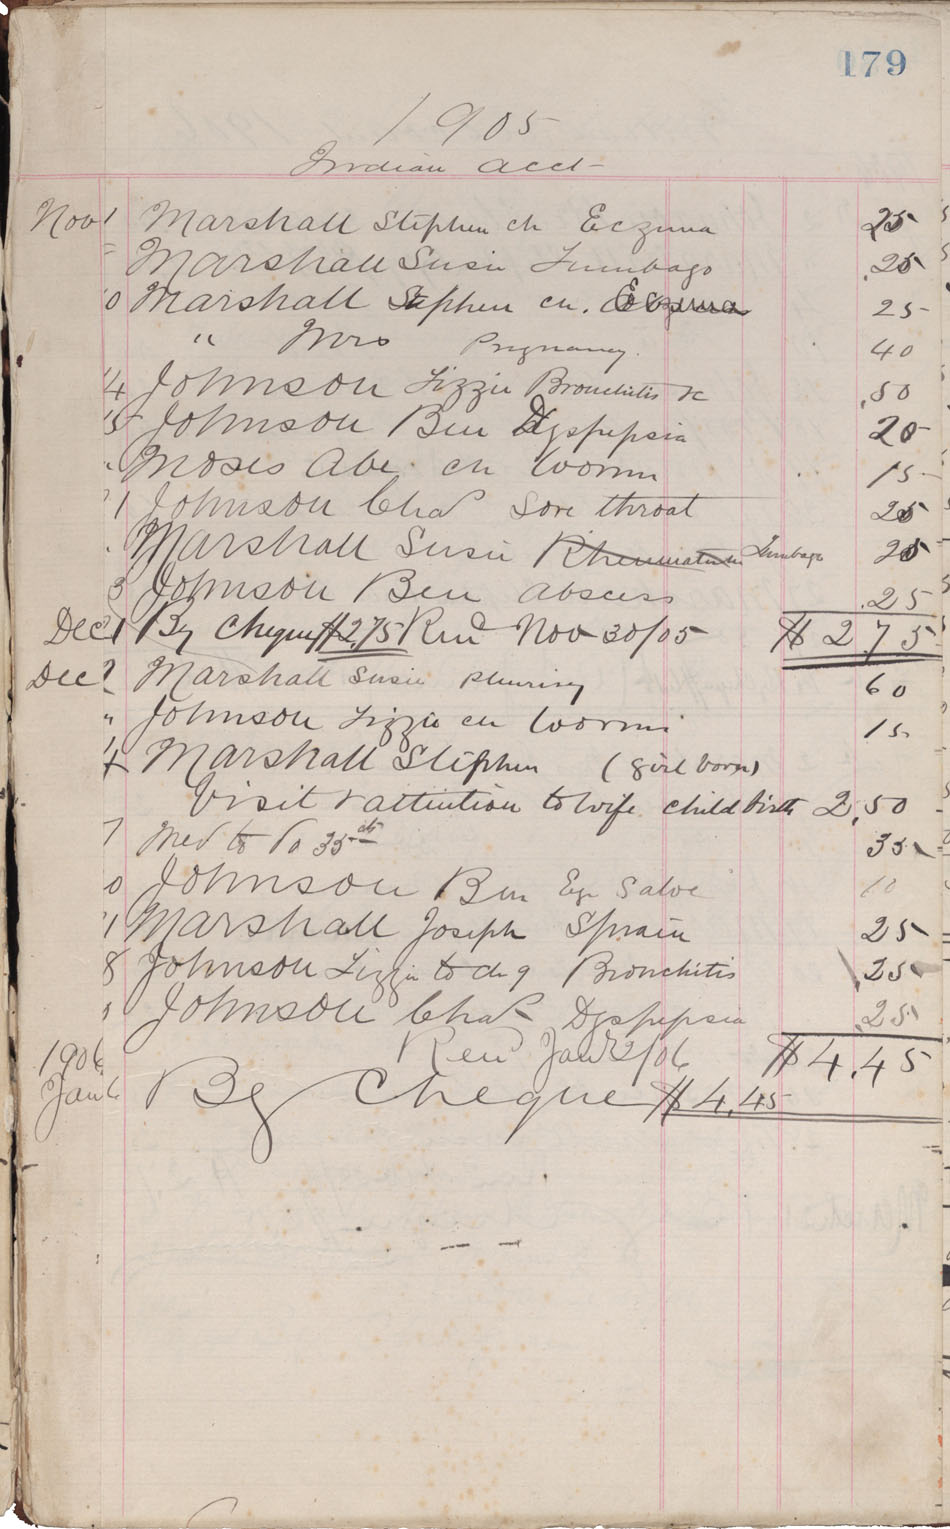 179
1905
Indian acct
Nov 1 Marshall Stephen ch Eczma 25
" Marshall Susie Lumbago .25
0 Marshall Stephen ch. Eczma 25
" Mrs Pregnancy. 40
4 Johnson Lizzie Bronchitis &c .50
5 Johnson Ben Dyspepsia 20
" Moses Abe ch Worms 15
1 Johnson Chas Sore throat 25
" Marshall Susie Rheumatism Lumbago 25
3 Johnson Ben Abscess .25
Dec 1 By Cheque $2.75 Ren'd Nov 30/05 $2.75
Dec 2 Marshall Susie pleurisy 60
" Johnson Lizzie ch Worms 15
4 Marshall Stephen (girl born)
Visit & attention to wife child birth 2.50
7 Med to Do 35 cts 35
0 Johnson Ben Eye Salve 10
1 Marshall Joseph Sprain 25
8 Johnson Lizzie to dg 9 Bronchitis .25
" Johnson Chas Dyspepsia .25
1906 Ren'd Jan 2/06 $4.45
Jan 6 By Cheque $4.45